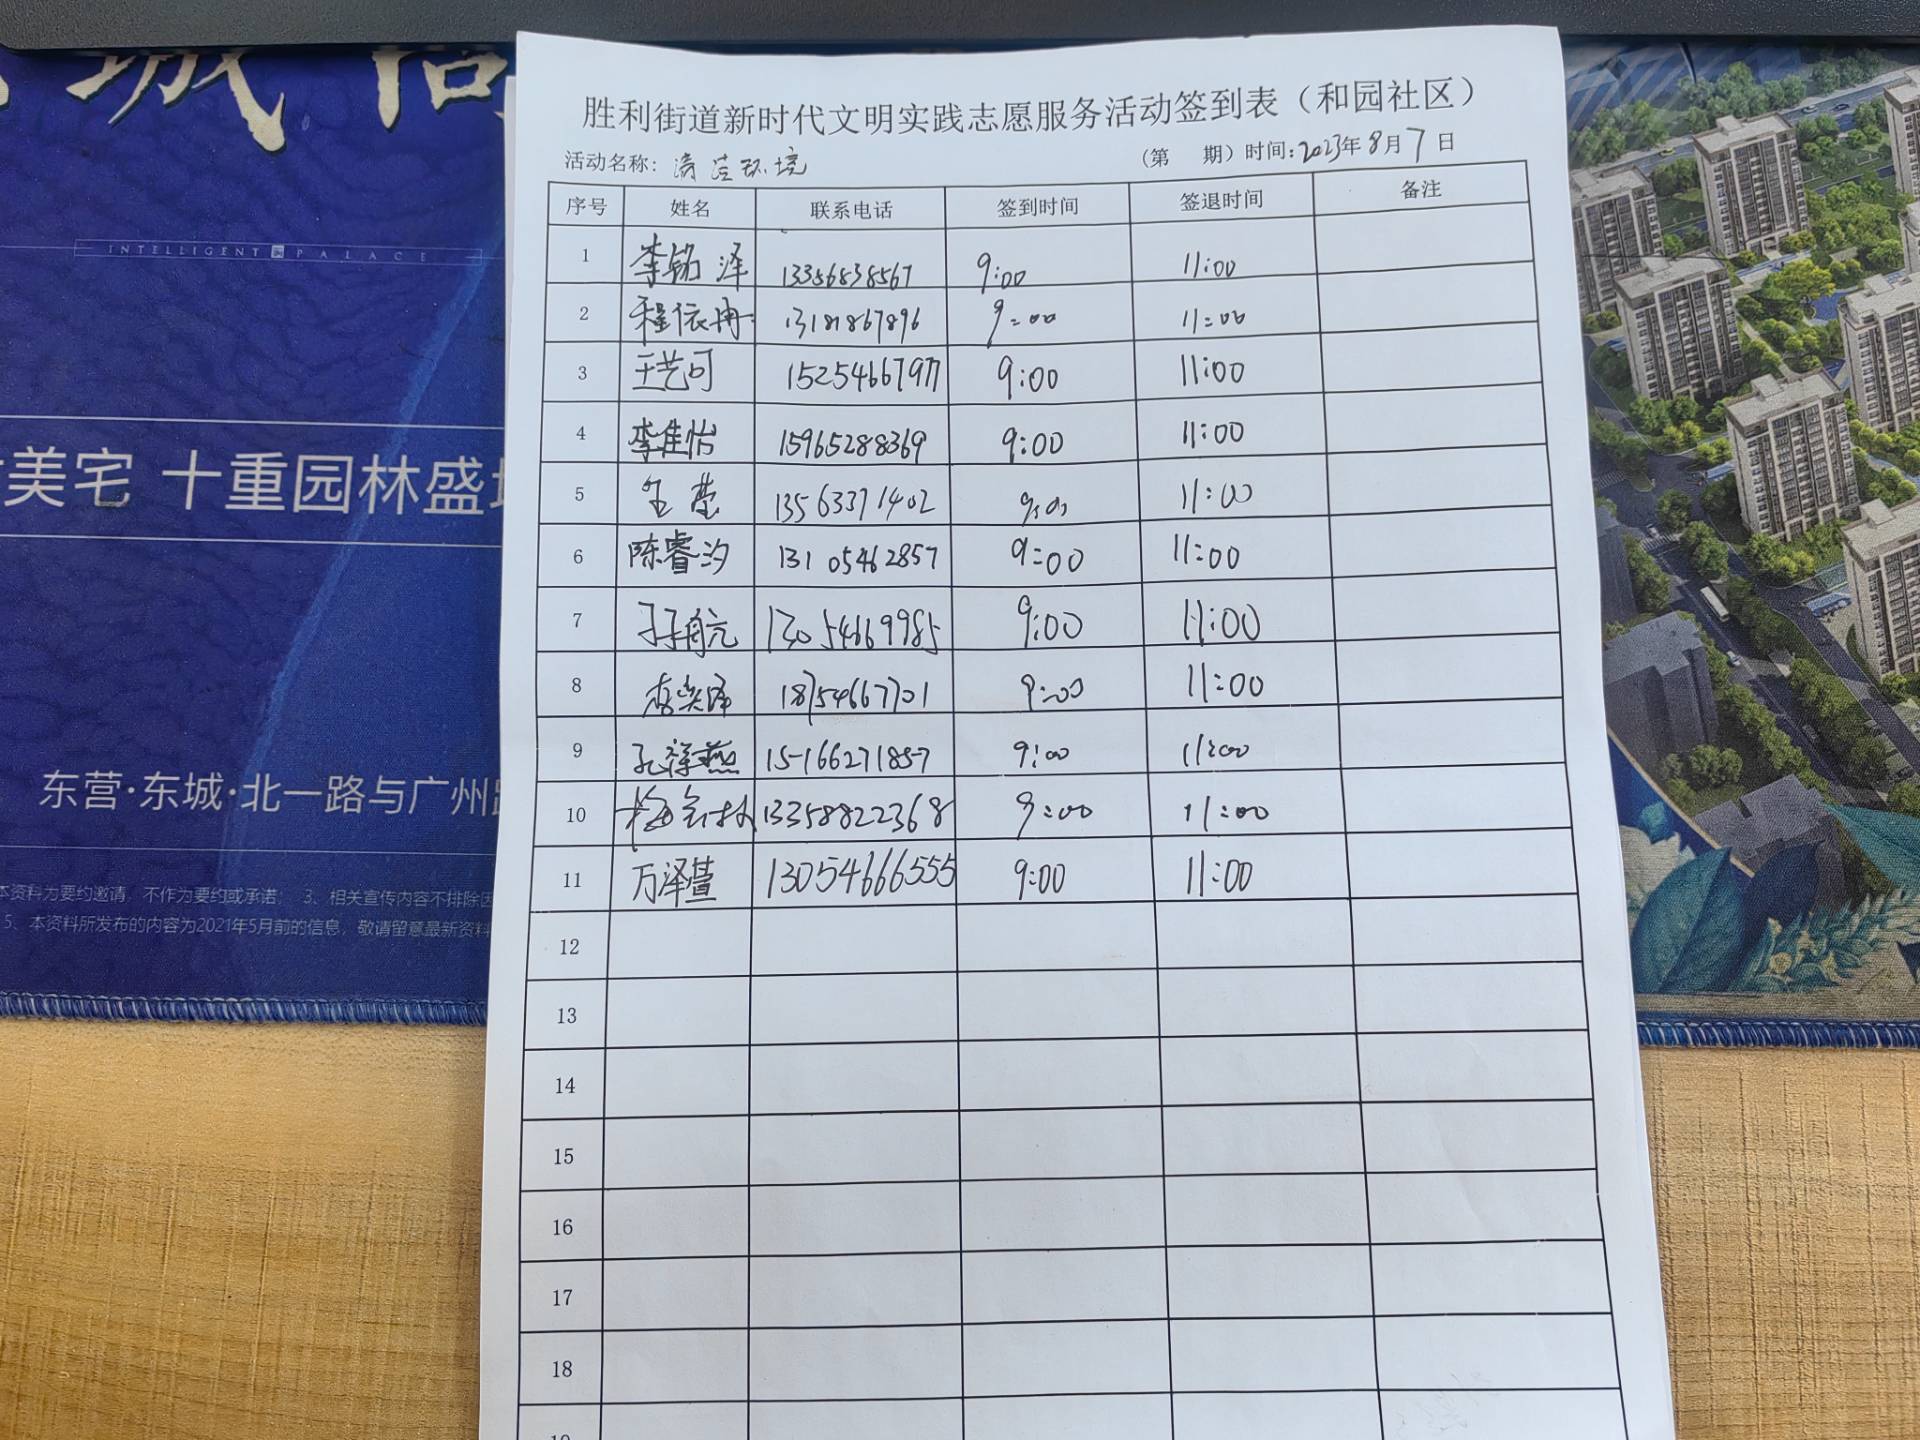 城
INTELLIGENT PALACE
美宅 十重园林盛
东营·东城·北一路与广州
本资料为要约邀请，不作为要约或承诺； 3、相关宣传内容不排除因
5、本资料所发布的内容为2021年5月前的信息，敬请留意最新资料
胜利街道新时代文明实践志愿服务活动签到表（和园社区）
活动名称：清洁环境 （第 期）时间：2023年8月7日
序号 姓名 联系电话 签到时间 签退时间 备注
1 李铭泽 13356838567 9:00 11:00
2 程依冉 13181867896 9:00 11:00
3 王艺可 15254667977 9:00 11:00
4 李佳怡 15965288369 9:00 11:00
5 13563371402 9:00 11:00
6 陈睿汐 13105462857 9:00 11:00
7 13054669985 9:00 11:00
8 李奕泽 18754667701 9:00 11:00
9 孔祥燕 15166271857 9:00 11:00
10 13358822368 9:00 11:00
11 万泽萱 13054666555 9:00 11:00
12
13
14
15
16
17
18